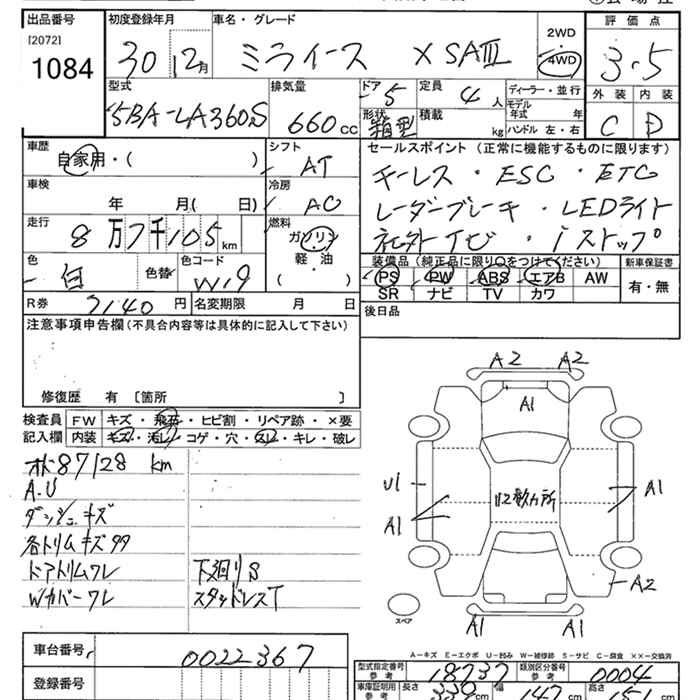 出品番号 初度登録年月 車名・グレード 2WD 評価点
[2072] 30 12月 ミライース X SAⅢ 4WD 3.5
1084 外装 内装
型式 排気量 ドア 5 定員 4人 ディーラー・並行 C D
5BA-LA360S 660cc 形状 箱型 積載 kg モデル年式 年
ハンドル 左・右
車歴 シフト セールスポイント (正常に機能するものに限ります)
自家用・( ) AT キーレス・ESC・ETC
車検 冷房 レーダーブレーキ・LEDライト
年 月( 日) AC 社外ナビ・iストップ
走行 燃料
8万7千105km ガソリン
軽・油
( )
色 白 色替 色コード W19 装備品 (純正品に限り○をつけてください) 新車保証書
PS PW ABS エアB AW 有・無
SR ナビ TV カワ
R券 7140円 名変期限 月 日 後日品
注意事項申告欄(不具合内容等は具体的に記入して下さい)
修復歴 有 〔箇所 〕
検査員 FW キズ・飛石・ヒビ割・リペア跡・×要
記入欄 内装 キズ・汚レ・コゲ・穴・スレ・キレ・破レ
オド87128 km
A.U
ダッシュキズ
各トリムキズ
ドアトリムワレ 下廻りS
Wカバーワレ スタッドレスT
A2 A2
A1
U1 A1
A1
A2
A1 A1
スペア
A-キズ E-エクボ U-凹み W-補修跡 S-サビ C-腐食 ××-交換済
車台番号 0022367
登録番号
型式指定番号 参考 18737 類別区分番号 参考 0004
車庫証明用 参考 長さ 339cm 幅 147cm 高さ 151cm